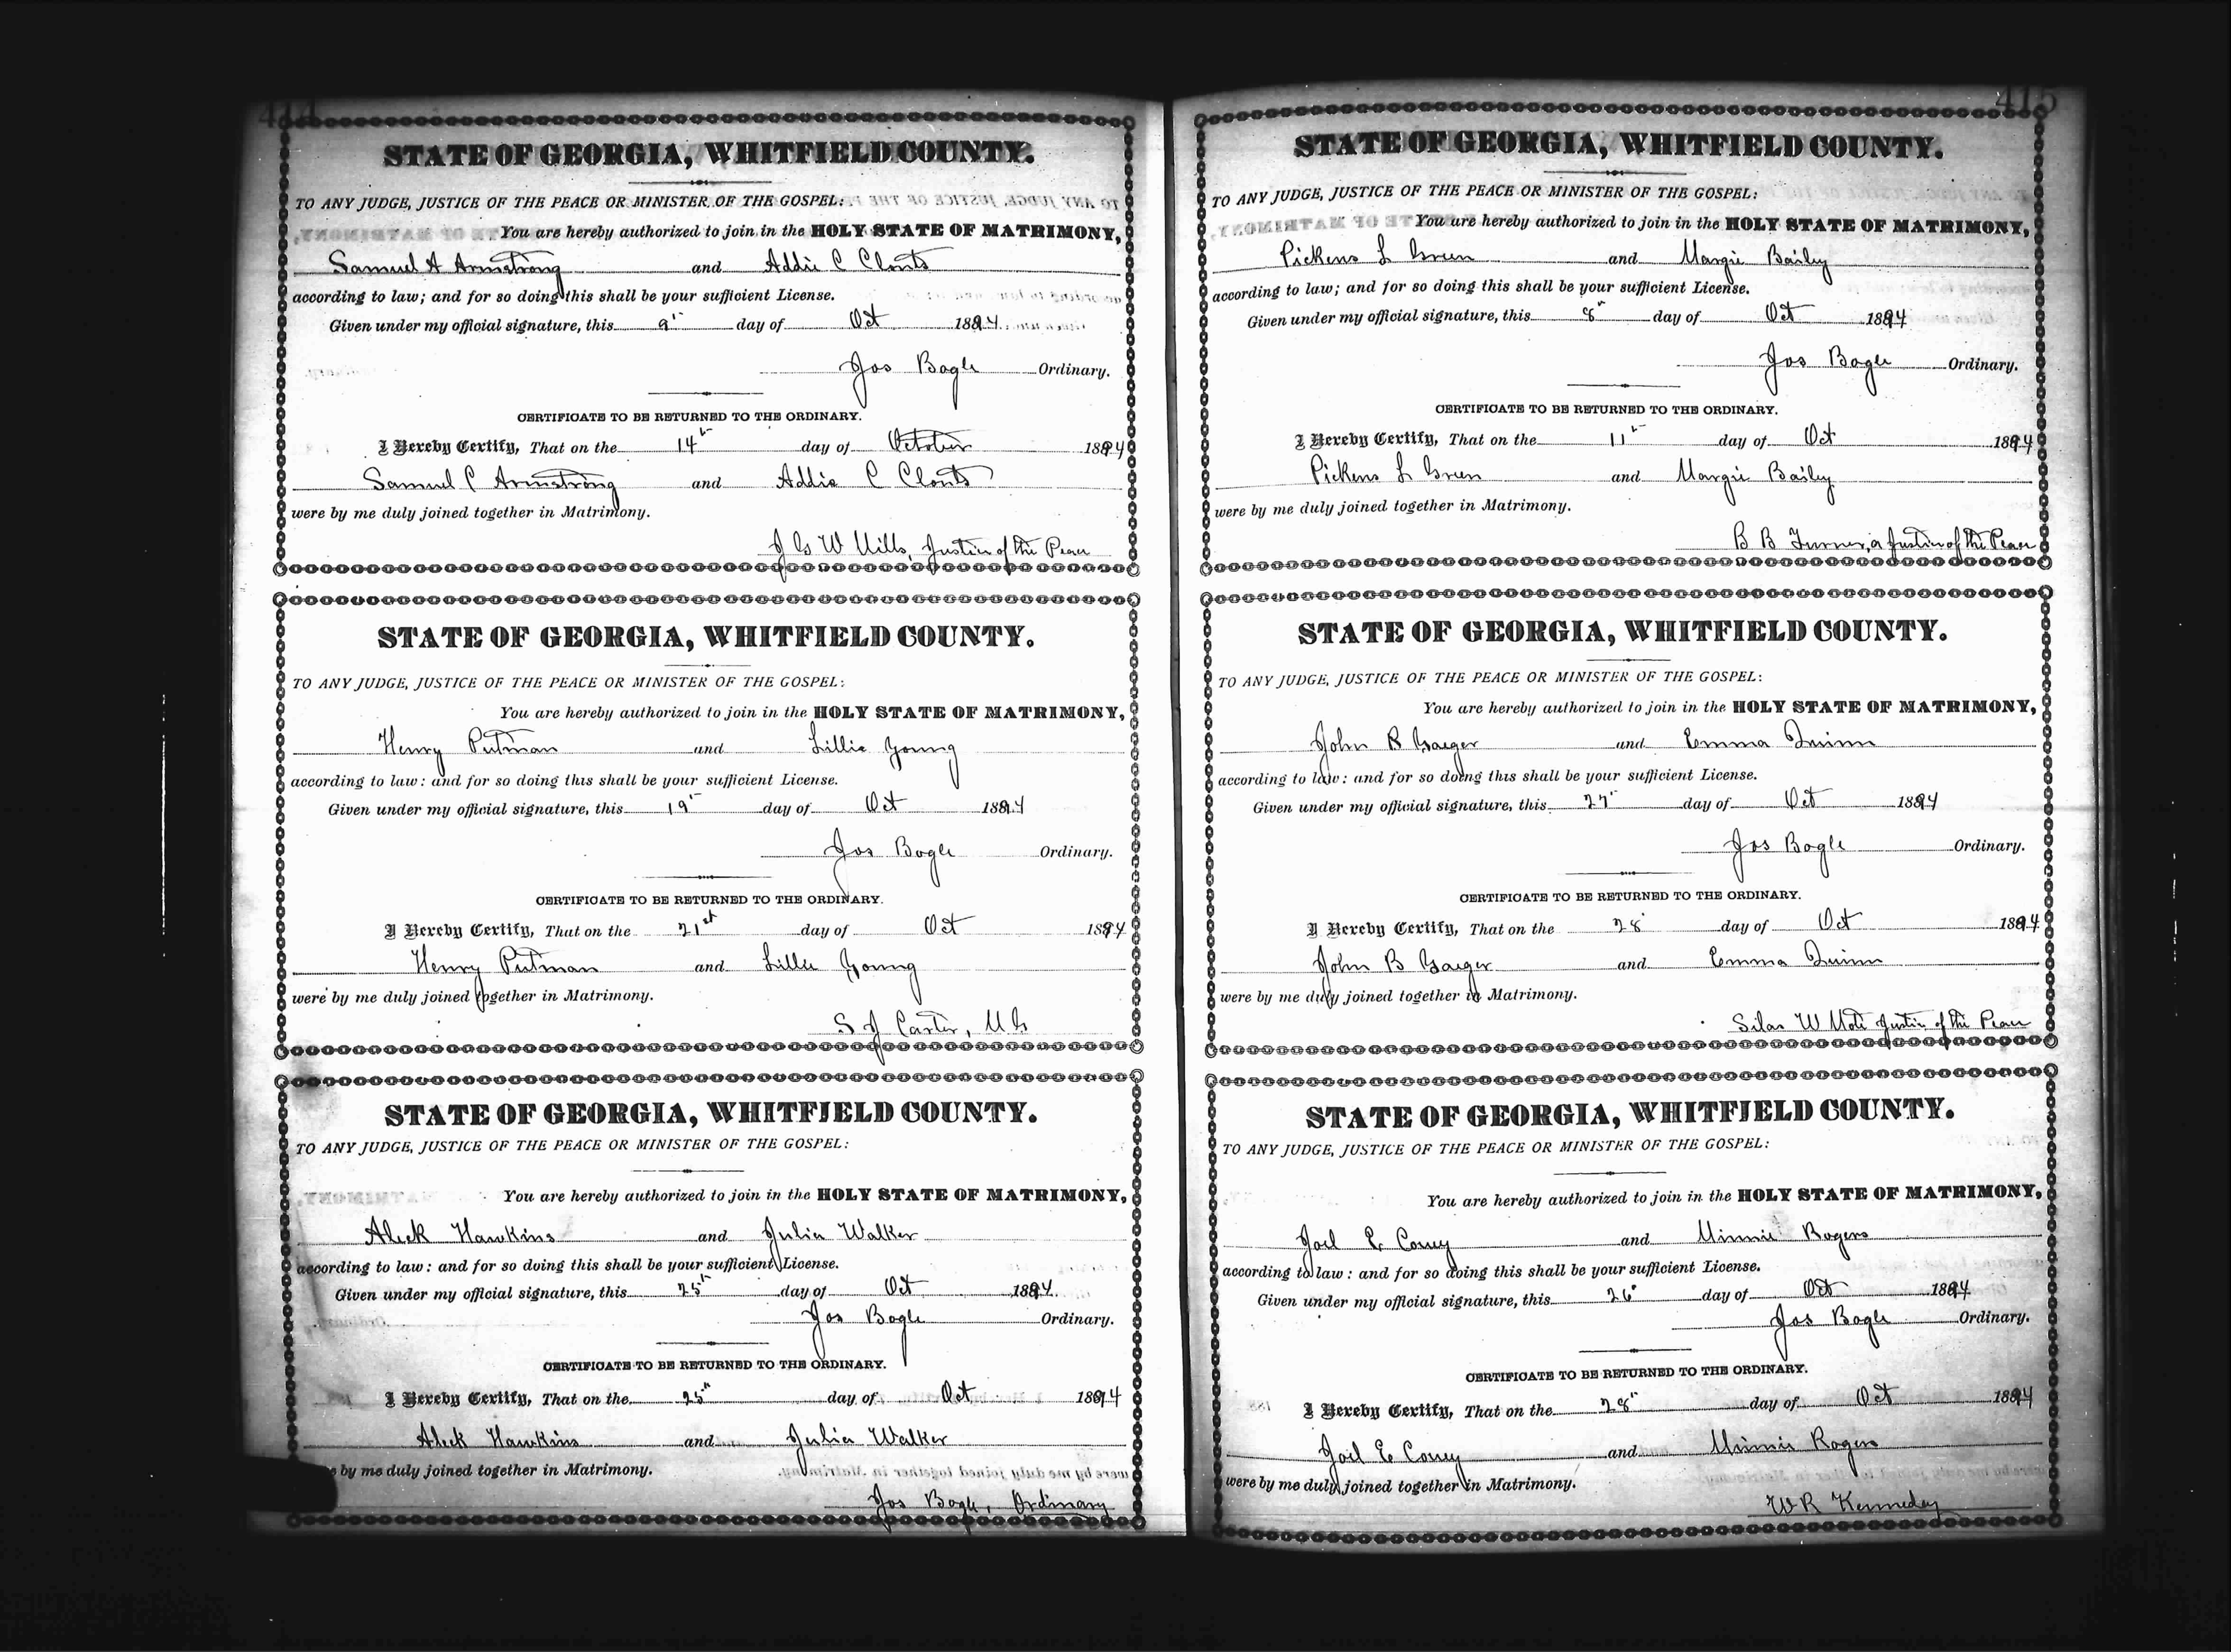 414
STATE OF GEORGIA, WHITFIELD COUNTY.
TO ANY JUDGE, JUSTICE OF THE PEACE OR MINISTER OF THE GOSPEL:
You are hereby authorized to join in the HOLY STATE OF MATRIMONY,
Samuel A Armstrong and Addie C Clonts
according to law; and for so doing this shall be your sufficient License.
Given under my official signature, this 9" day of Oct 1894
Jos Bogle Ordinary.
CERTIFICATE TO BE RETURNED TO THE ORDINARY.
I Hereby Certify, That on the 14" day of October 1894
Samuel C Armstrong and Addie C Clonts
were by me duly joined together in Matrimony.
J G W Mills, Justice of the Peace
STATE OF GEORGIA, WHITFIELD COUNTY.
TO ANY JUDGE, JUSTICE OF THE PEACE OR MINISTER OF THE GOSPEL:
You are hereby authorized to join in the HOLY STATE OF MATRIMONY,
Henry Putman and Lillie Young
according to law: and for so doing this shall be your sufficient License.
Given under my official signature, this 19" day of Oct 1894
Jos Bogle Ordinary.
CERTIFICATE TO BE RETURNED TO THE ORDINARY.
I Hereby Certify, That on the 21st day of Oct 1894
Henry Putman and Lillie Young
were by me duly joined together in Matrimony.
S J Carter, M G
STATE OF GEORGIA, WHITFIELD COUNTY.
TO ANY JUDGE, JUSTICE OF THE PEACE OR MINISTER OF THE GOSPEL:
You are hereby authorized to join in the HOLY STATE OF MATRIMONY,
Aleck Hawkins and Julia Walker
according to law: and for so doing this shall be your sufficient License.
Given under my official signature, this 25" day of Oct 1894
Jos Bogle Ordinary.
CERTIFICATE TO BE RETURNED TO THE ORDINARY.
I Hereby Certify, That on the 25" day of Oct 1894
Aleck Hawkins and Julia Walker
by me duly joined together in Matrimony.
Jos Bogle, Ordinary
415
STATE OF GEORGIA, WHITFIELD COUNTY.
TO ANY JUDGE, JUSTICE OF THE PEACE OR MINISTER OF THE GOSPEL:
You are hereby authorized to join in the HOLY STATE OF MATRIMONY,
Pickens L Green and Margie Bailey
according to law; and for so doing this shall be your sufficient License.
Given under my official signature, this 8" day of Oct 1894
Jos Bogle Ordinary.
CERTIFICATE TO BE RETURNED TO THE ORDINARY.
I Hereby Certify, That on the 11" day of Oct 1894
Pickens L Green and Margie Bailey
were by me duly joined together in Matrimony.
B B Turner, a Justice of the Peace
STATE OF GEORGIA, WHITFIELD COUNTY.
TO ANY JUDGE, JUSTICE OF THE PEACE OR MINISTER OF THE GOSPEL:
You are hereby authorized to join in the HOLY STATE OF MATRIMONY,
John B Gaeger and Emma Quinn
according to law: and for so doing this shall be your sufficient License.
Given under my official signature, this 27" day of Oct 1894
Jos Bogle Ordinary.
CERTIFICATE TO BE RETURNED TO THE ORDINARY.
I Hereby Certify, That on the 28" day of Oct 1894
John B Gaeger and Emma Quinn
were by me duly joined together in Matrimony.
Silas W Mote Justice of the Peace
STATE OF GEORGIA, WHITFIELD COUNTY.
TO ANY JUDGE, JUSTICE OF THE PEACE OR MINISTER OF THE GOSPEL:
You are hereby authorized to join in the HOLY STATE OF MATRIMONY,
Joel E Coney and Minnie Rogers
according to law: and for so doing this shall be your sufficient License.
Given under my official signature, this 26" day of Oct 1894
Jos Bogle Ordinary.
CERTIFICATE TO BE RETURNED TO THE ORDINARY.
I Hereby Certify, That on the 28" day of Oct 1894
Joel E Coney and Minnie Rogers
were by me duly joined together in Matrimony.
W R Kenneday